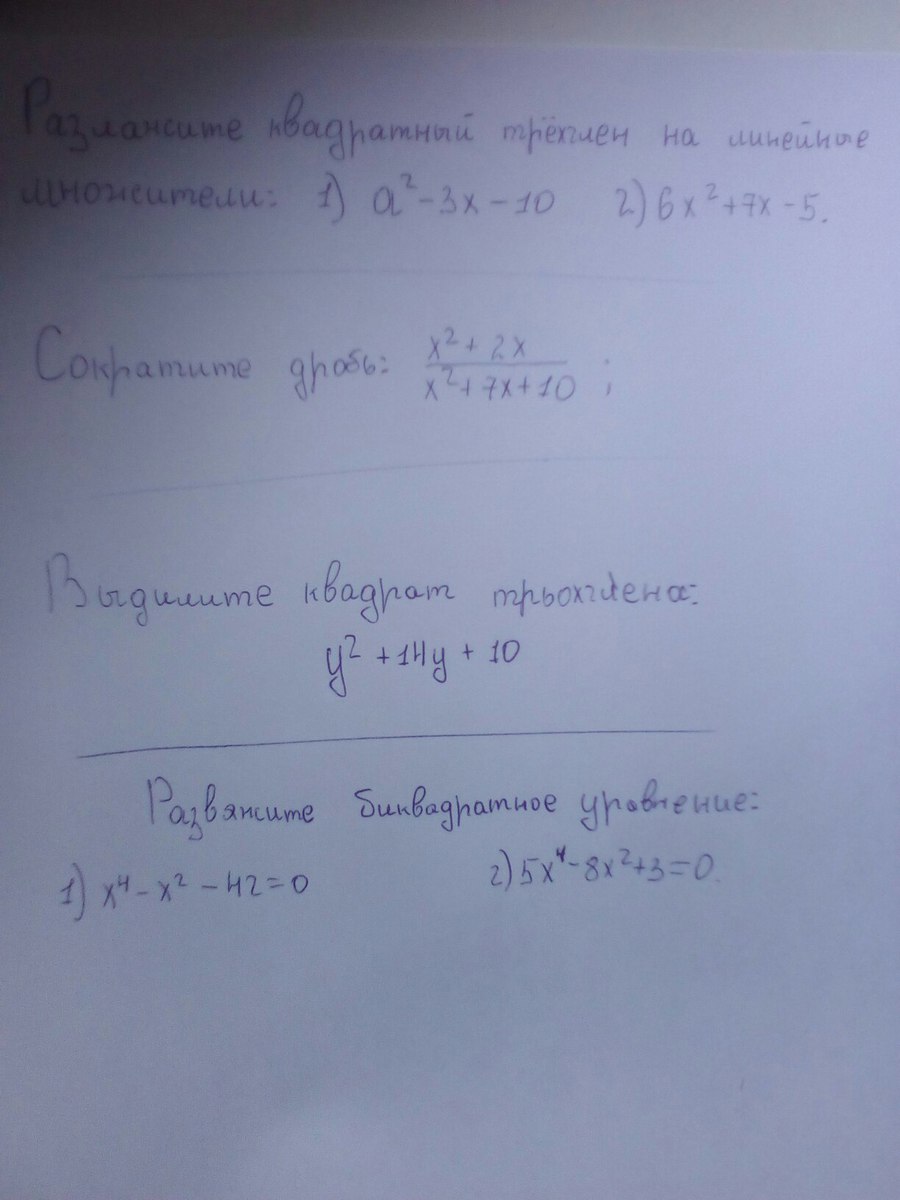 Разложите квадратный трёхчлен на линейные
множители: 1) a² - 3x - 10 2) 6x² + 7x - 5.
Сократите дробь: (x² + 2x)/(x² + 7x + 10) ;
Выдилите квадрат трьохчлена:
y² + 14y + 10
Развяжите биквадратное уровнение:
1) x⁴ - x² - 42 = 0 2) 5x⁴ - 8x² + 3 = 0.